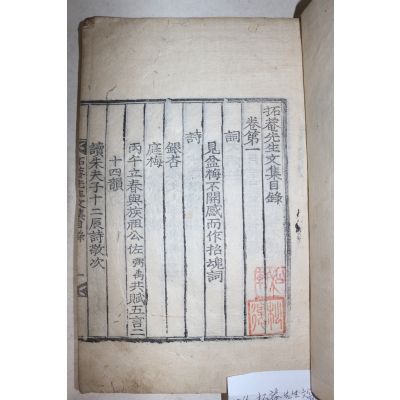 拓菴先生文集目錄
卷第一
詞
見盆梅不開感而作招魂詞
詩
銀杏
庭梅
丙午立春與族祖公佐弼禹共賦五言二
十四韻
讀朱夫子十二辰詩敬次
拓菴先生文集目錄